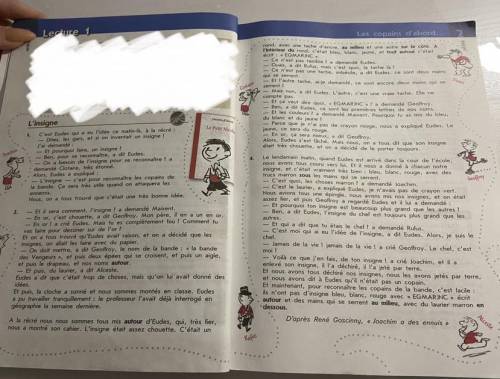 Lecture 1
L'insigne
1. C'est Eudes qui a eu l'idée ce matin-là, à la récré :
— Dites, les gars, et si on inventait un insigne !
J'ai demandé :
— Et pourquoi faire, un insigne ?
— Ben, pour se reconnaître, a dit Eudes.
— On a besoin de l'insigne pour se reconnaître ? a
demandé Clotaire, très étonné.
Alors, Eudes a expliqué :
— L'insigne, c'est pour reconnaître les copains de
la bande. Ça sera très utile quand on attaquera les
ennemis.
Nous, on a tous trouvé que c'était une très bonne idée.
Le Petit Nicolas
2. — Et il sera comment, l'insigne ? a demandé Maixent.
— En or, c'est chouette, a dit Geoffroy. Mon père, il en a un en or.
— En or ! a crié Eudes. Mais tu es complètement fou ! Comment tu
vas faire pour dessiner sur de l'or ?
On a tous trouvé qu'Eudes avait raison, et on a décidé que les
insignes, on allait les faire avec du papier.
— On doit mettre, a dit Geoffroy, le nom de la bande : « la bande
des Vengeurs », et puis deux épées qui se croisent, et puis un aigle,
et puis le drapeau, et nos noms autour.
— Et puis, du laurier, a dit Alceste.
Eudes a dit que c'était trop de choses, mais qu'on lui avait donné des
idées.
Et puis, la cloche a sonné et nous sommes montés en classe. Eudes
a pu travailler tranquillement : le professeur l'avait déjà interrogé en
géographie la semaine dernière.
A la récré nous nous sommes tous mis autour d'Eudes, qui, très fier,
nous a montré son cahier. L'insigne était assez chouette. C'était un
Rufus
Les copains d'abord
2
rond, avec une tache d'encre, au milieu et une autre sur le côté. A
l'intérieur du rond, c'était bleu, blanc, jaune, et tout autour c'était
écrit : « EGMARJNC ».
— Ce n'est pas terrible ? a demandé Eudes.
— Ouais, a dit Rufus, mais c'est quoi, la tache là ?
— Ce n'est pas une tache, imbécile, a dit Eudes, ce sont deux mains
qui se serrent.
— Et l'autre tache, ai-je demandé, ce sont encore deux mains qui se
serrent ?
— Mais non, a dit Eudes. L'autre, c'est une vraie tache. Elle ne
compte pas.
— Et ça veut dire quoi, « EGMARJNC » ? a demandé Geoffroy.
— Ben, a dit Eudes, ce sont les premières lettres de nos noms.
— Et les couleurs ? a demandé Maixent. Pourquoi tu as mis du bleu,
du blanc et du jaune ?
— Parce que je n'ai pas de crayon rouge, nous a expliqué Eudes. Le
jaune, ce sera du rouge.
— En or, ce sera mieux, a dit Geoffroy.
Alors, Eudes s'est fâché. Mais nous, on a tous dit que son insigne
était très chouette, et on a décidé de le porter toujours.
4. Le lendemain matin, quand Eudes est arrivé dans la cour de l'école,
nous avons tous couru vers lui. Et il nous a donné à chacun notre
insigne, et c'était vraiment très bien : bleu, blanc, rouge, avec des
trucs marron sous les mains qui se serrent.
— C'est quoi, les choses marron ? a demandé Joachim.
— C'est le laurier, a expliqué Eudes, je n'avais pas de crayon vert.
Nous avons tous une épingle, nous avons mis nos insignes, et on était
assez fier, et puis Geoffroy a regardé Eudes et il lui a demandé :
— Et pourquoi ton insigne est beaucoup plus grand que les autres ?
— Ben, a dit Eudes, l'insigne du chef est toujours plus grand que les
autres.
— Et qui a dit que tu étais le chef ? a demandé Rufus.
— C'est moi qui ai eu l'idée de l'insigne, a dit Eudes. Alors, je suis le
chef.
— Jamais de la vie ! jamais de la vie ! a crié Geoffroy. Le chef, c'est
moi !
— Voilà ce que j'en fais, de ton insigne ! a crié Joachim, et il a
enlevé son insigne, il l'a déchiré, il l'a jeté par terre.
Et nous avons tous déchiré nos insignes, nous les avons jetés par terre,
et nous avons dit à Eudes qu'il n'était pas un copain.
Et maintenant, pour reconnaître les copains de la bande, c'est facile :
ils n'ont pas d'insigne bleu, blanc, rouge avec « EGMARJNC » écrit
autour et des mains qui se serrent au milieu, avec du laurier marron en
dessous.
D'après René Goscinny, « Joachim a des ennuis »
Alceste